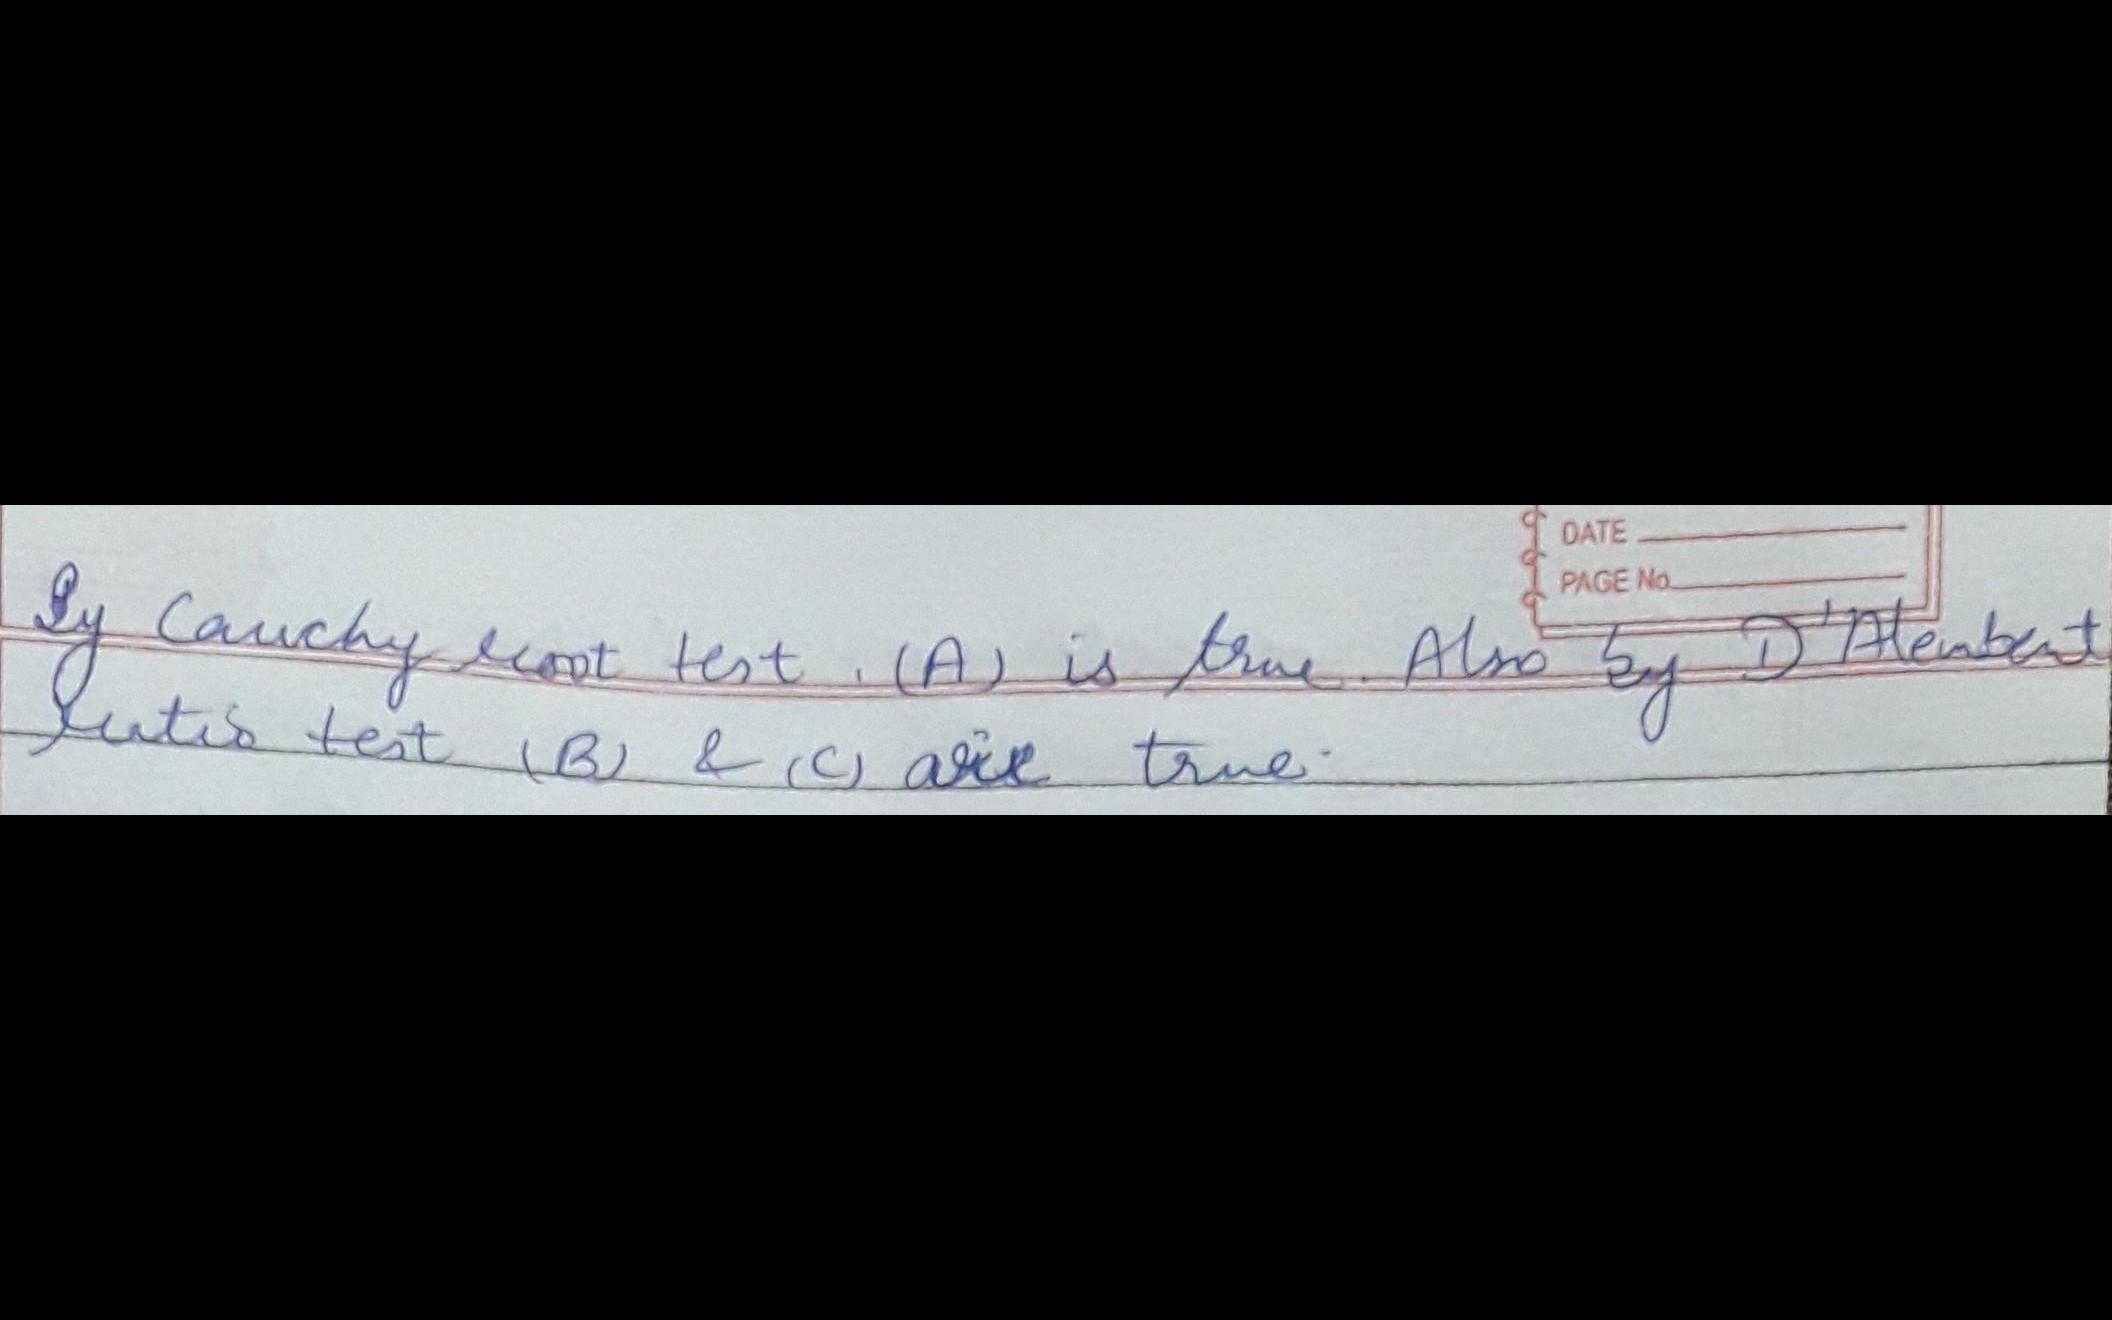 DATE
PAGE No
By Cauchy root test. (A) is true. Also by D'Alembert
ratio test (B) & (C) are true.